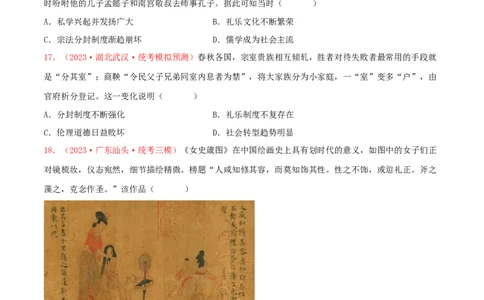 时吩咐他的儿子孟懿子和南宫敬叔去师事孔子。据此可知当时（        ）
A．私学兴起并发扬广大	B．礼乐文化不断繁荣
C．宗法分封制度渐趋崩坏	D．儒学成为社会主流
17．（2023·湖北武汉·统考模拟预测）春秋各国，宗室贵族相互倾轧，胜者对待失败者最常用的手段就
是“分其室”；商鞅“令民父子兄弟同室内息者为禁”，将大家族分为小家庭，一“室”变多“户”，由
官府析分登记。这一变化说明（        ）
A．分封制度不断强化	B．礼乐制度不复存在
C．伦理道德日益败坏	D．社会转型趋势明显
18．（2023·广东汕头·统考三模）《女史箴图》在中国绘画史上具有划时代的意义，如图中的女子们正
对镜梳妆，仪态宛然，细节描绘精微。榜题“人咸知修其容，而莫知饰其性。性之不饰，或愆礼正。斧之
藻之，克念作圣。”该作品（        ）